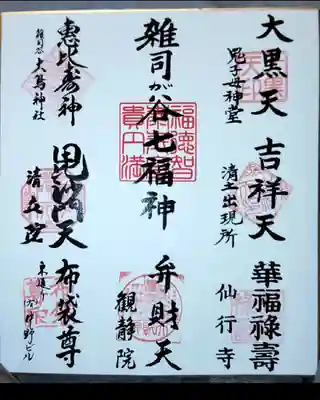 大黒天
鬼子母神堂
吉祥天
清土出現所
華福禄壽
仙行寺
雑司が谷七福神
福徳智
貴円満
弁財天
観静院
恵比寿神
雑司谷 大鳥神社
毘沙門天
清立院
布袋尊
東通り 中野ビル